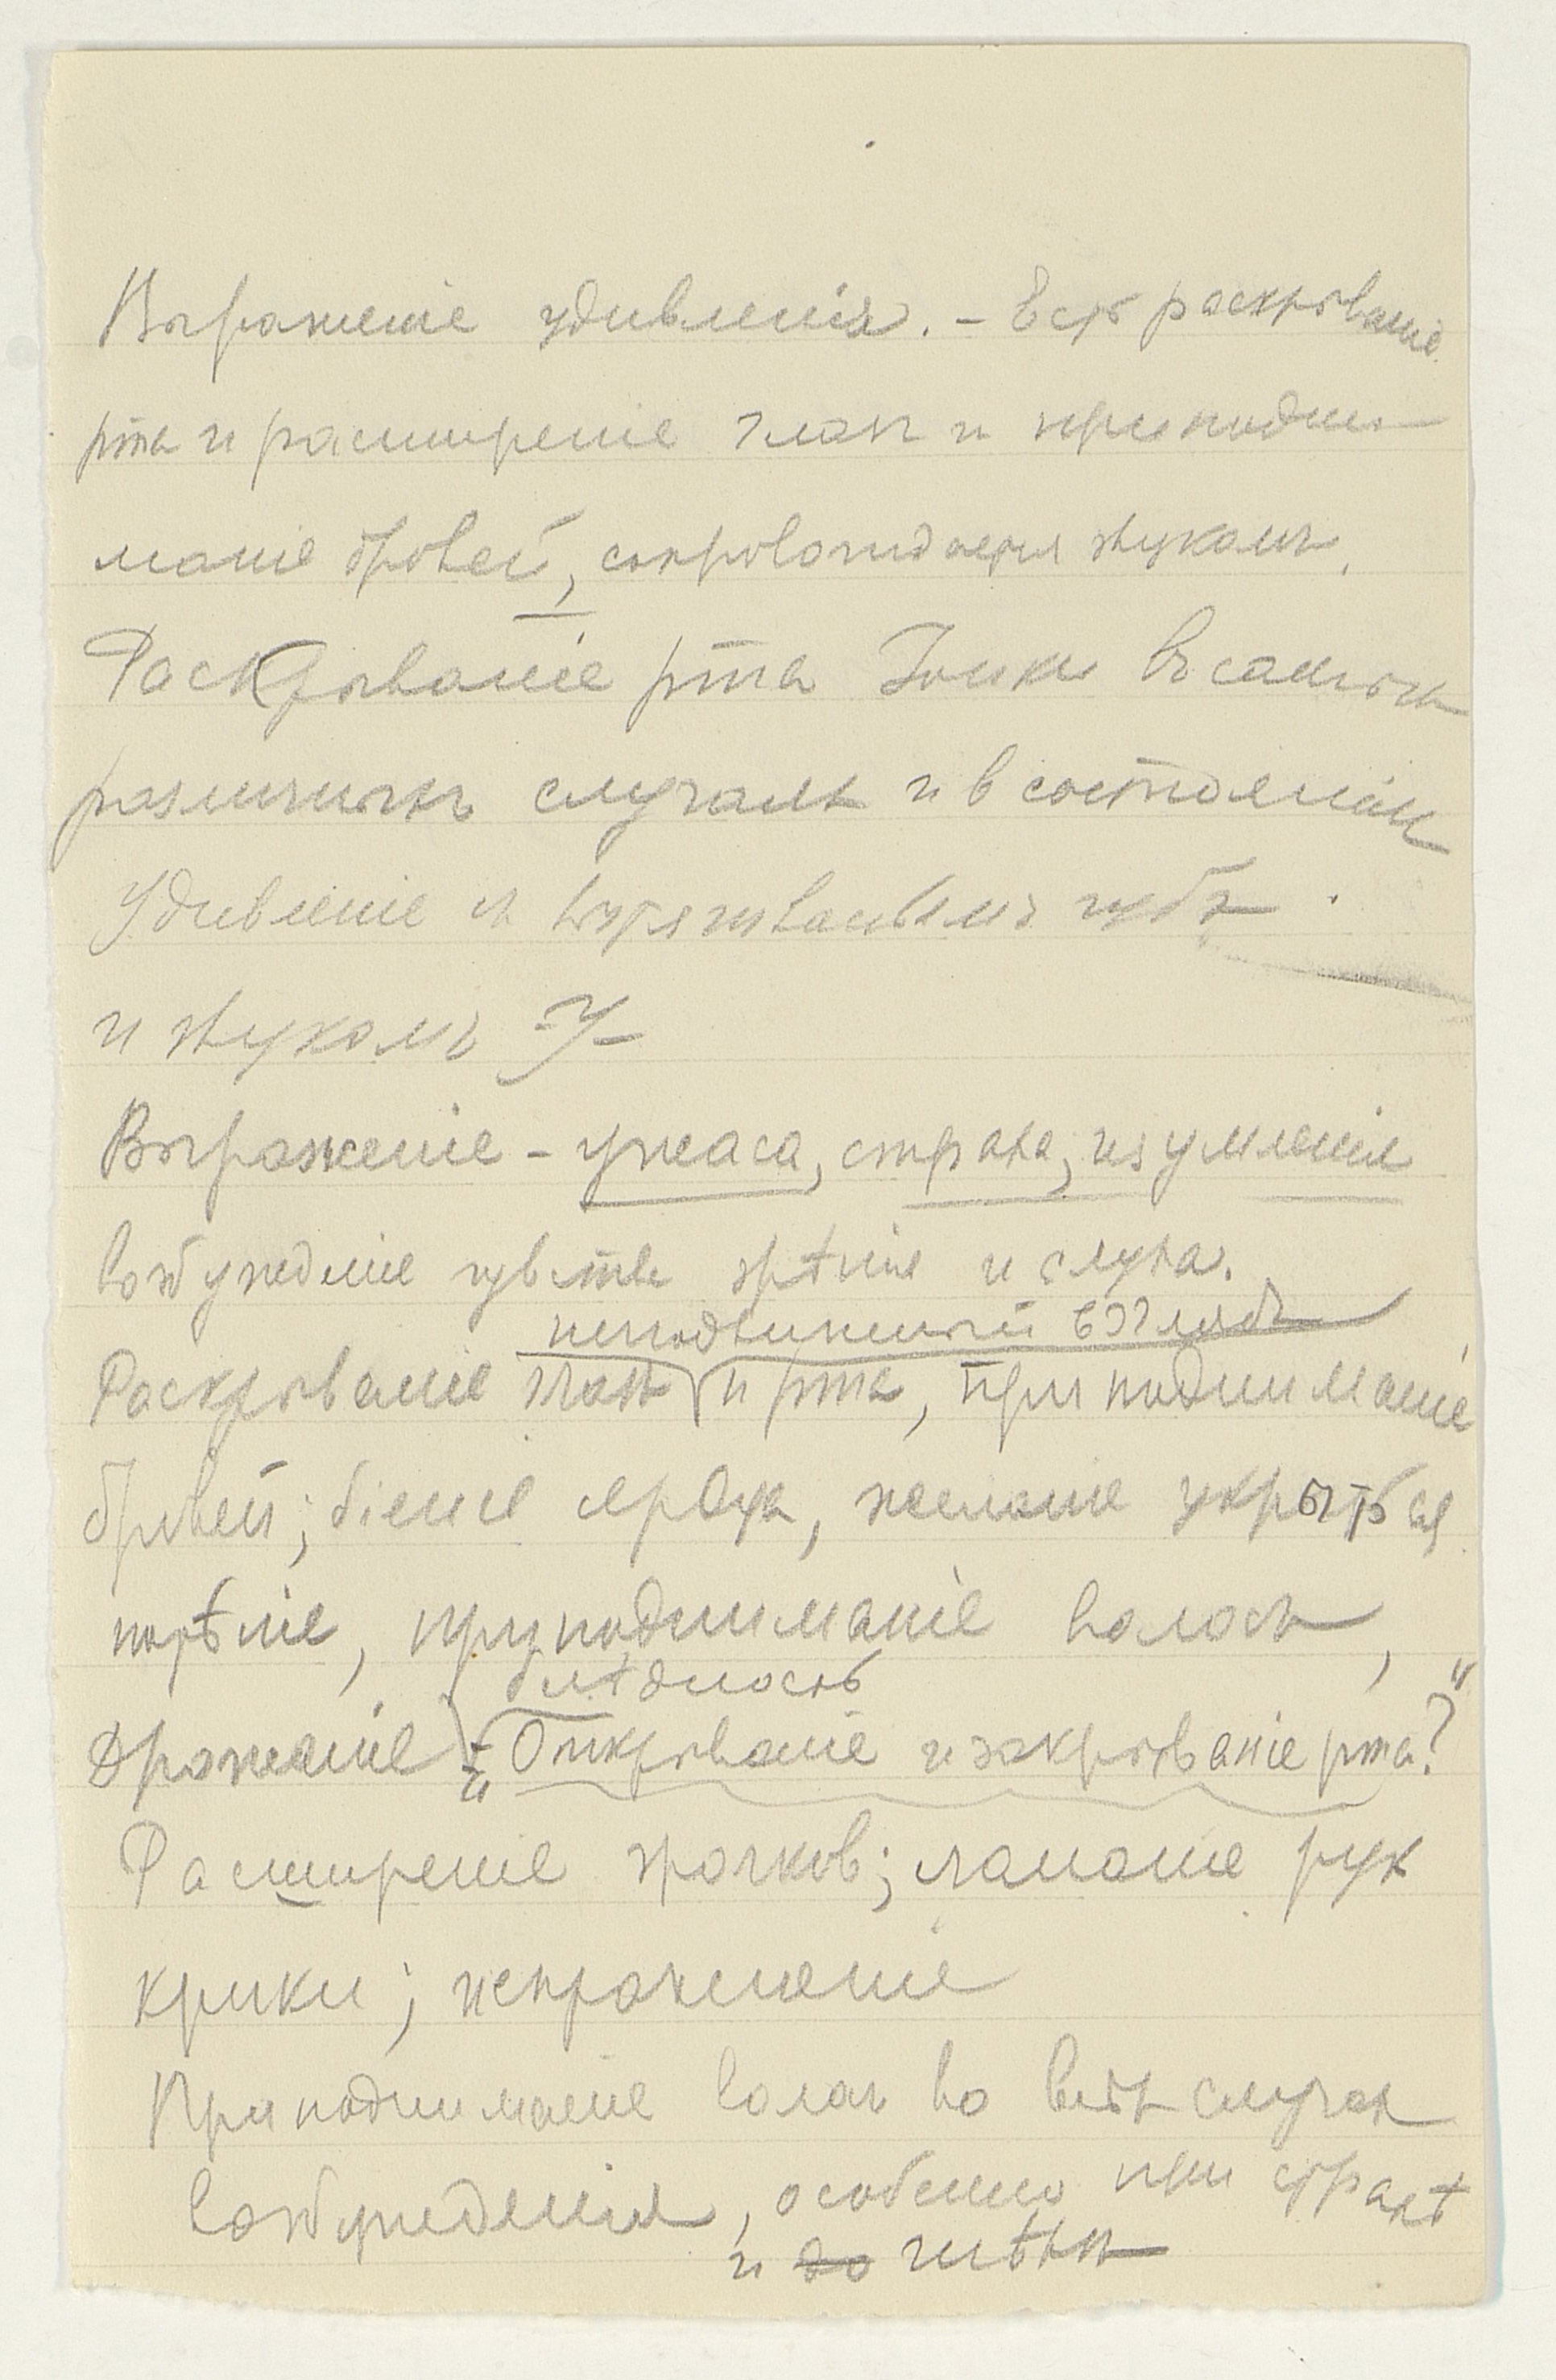 Выраженіе удивленія. - Есть раскрываніе
рта и расширеніе глазъ и приподни-
маніе бровей, сопровождается звукомъ.
Раскрываніе рта Іони въ самыхъ
различныхъ случаяхъ и в состояніи
Удивленіе съ вытягиваніемъ губъ.
и звукомъ -У-
Выраженіе - ужаса, страха, изумленія
Возбужденіе чувствъ зрѣнія и слуха.
неподвижный взглядъ
Раскрываніе глазъ и рта, приподниманіе
бровей; біеніе сердца, желаніе укрыться
потѣніе, приподниманіе волосъ,
блѣдность
Дрожаніе „Открываніе и закрываніе рта?"
Расширеніе зрачков; ломаніе рук
крики; испражненіе
Приподниманіе волосъ во всѣхъ случаях
Возбужденія, особенно при страхѣ
и до гнѣвѣ